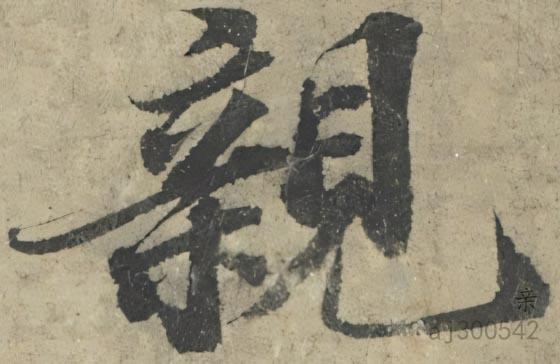 親
亲
aj300542